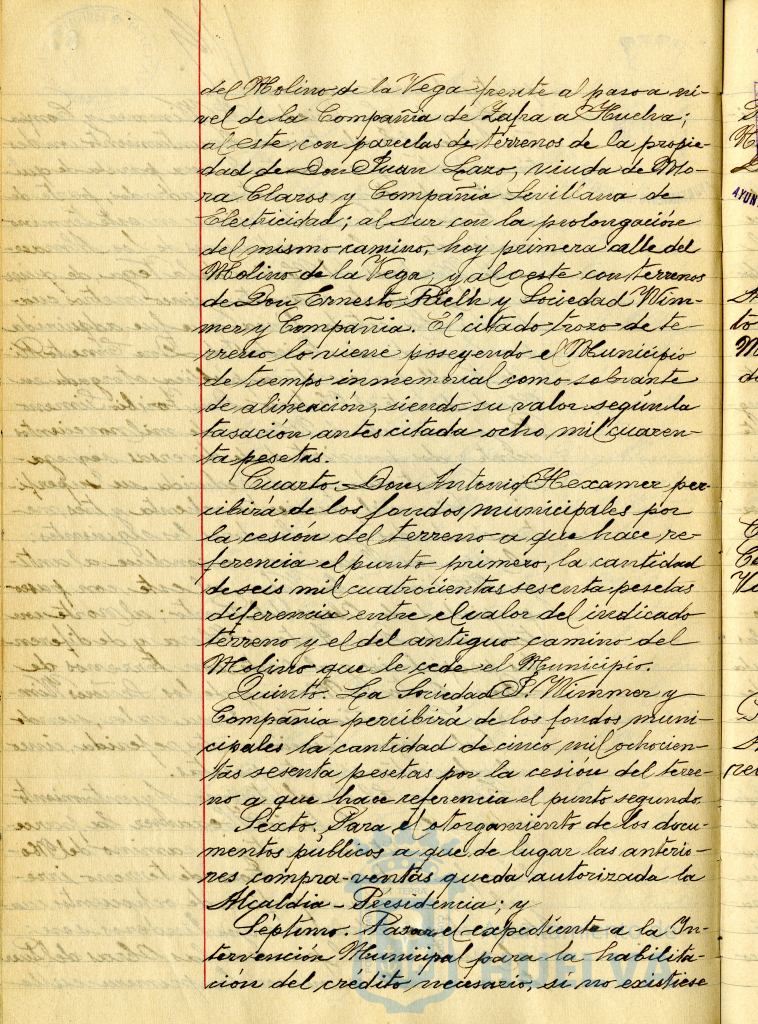 del Molino de la Vega frente al paso a ni-
vel de la Compañia de Zafra a Huelva;
al este, con parcelas de terrenos de la propie-
dad de Don Juan Lazo, viuda de Mo-
ra Claros y Compañia Sevillana de
Electricidad; al sur con la prolongación
del mismo camino, hoy primera calle del
Molino de la Vega, y al oeste con terrenos
de Don Ernesto Rielh y Sociedad Wim-
mer y Compañia. El citado trozo de te-
rreno lo viene poseyendo el Municipio
de tiempo inmemorial como sobrante
de alineación, siendo su valor según la
tasación antes citada ocho mil cuaren-
ta pesetas.
Cuarto. Don Antonio Hexamer per-
cibirá de los fondos municipales por
la cesión del terreno a que hace re-
ferencia el punto primero, la cantidad
de seis mil cuatrocientas sesenta pesetas
diferencia entre el valor del indicado
terreno y el del antiguo camino del
Molino que le cede el Municipio.
Quinto. La Sociedad P. Wimmer y
Compañia percibirá de los fondos muni-
cipales la cantidad de cinco mil ochocien-
tas sesenta pesetas por la cesión del terre-
no a que hace referencia el punto segundo.
Sexto. Para el otorgamiento de los docu-
mentos públicos a que de lugar las anterio-
res compra-ventas queda autorizada la
Alcaldia-Presidencia; y
Séptimo. Pasar el expediente a la In-
tervención Municipal para la habilita-
ción del crédito necesario, si no existiese